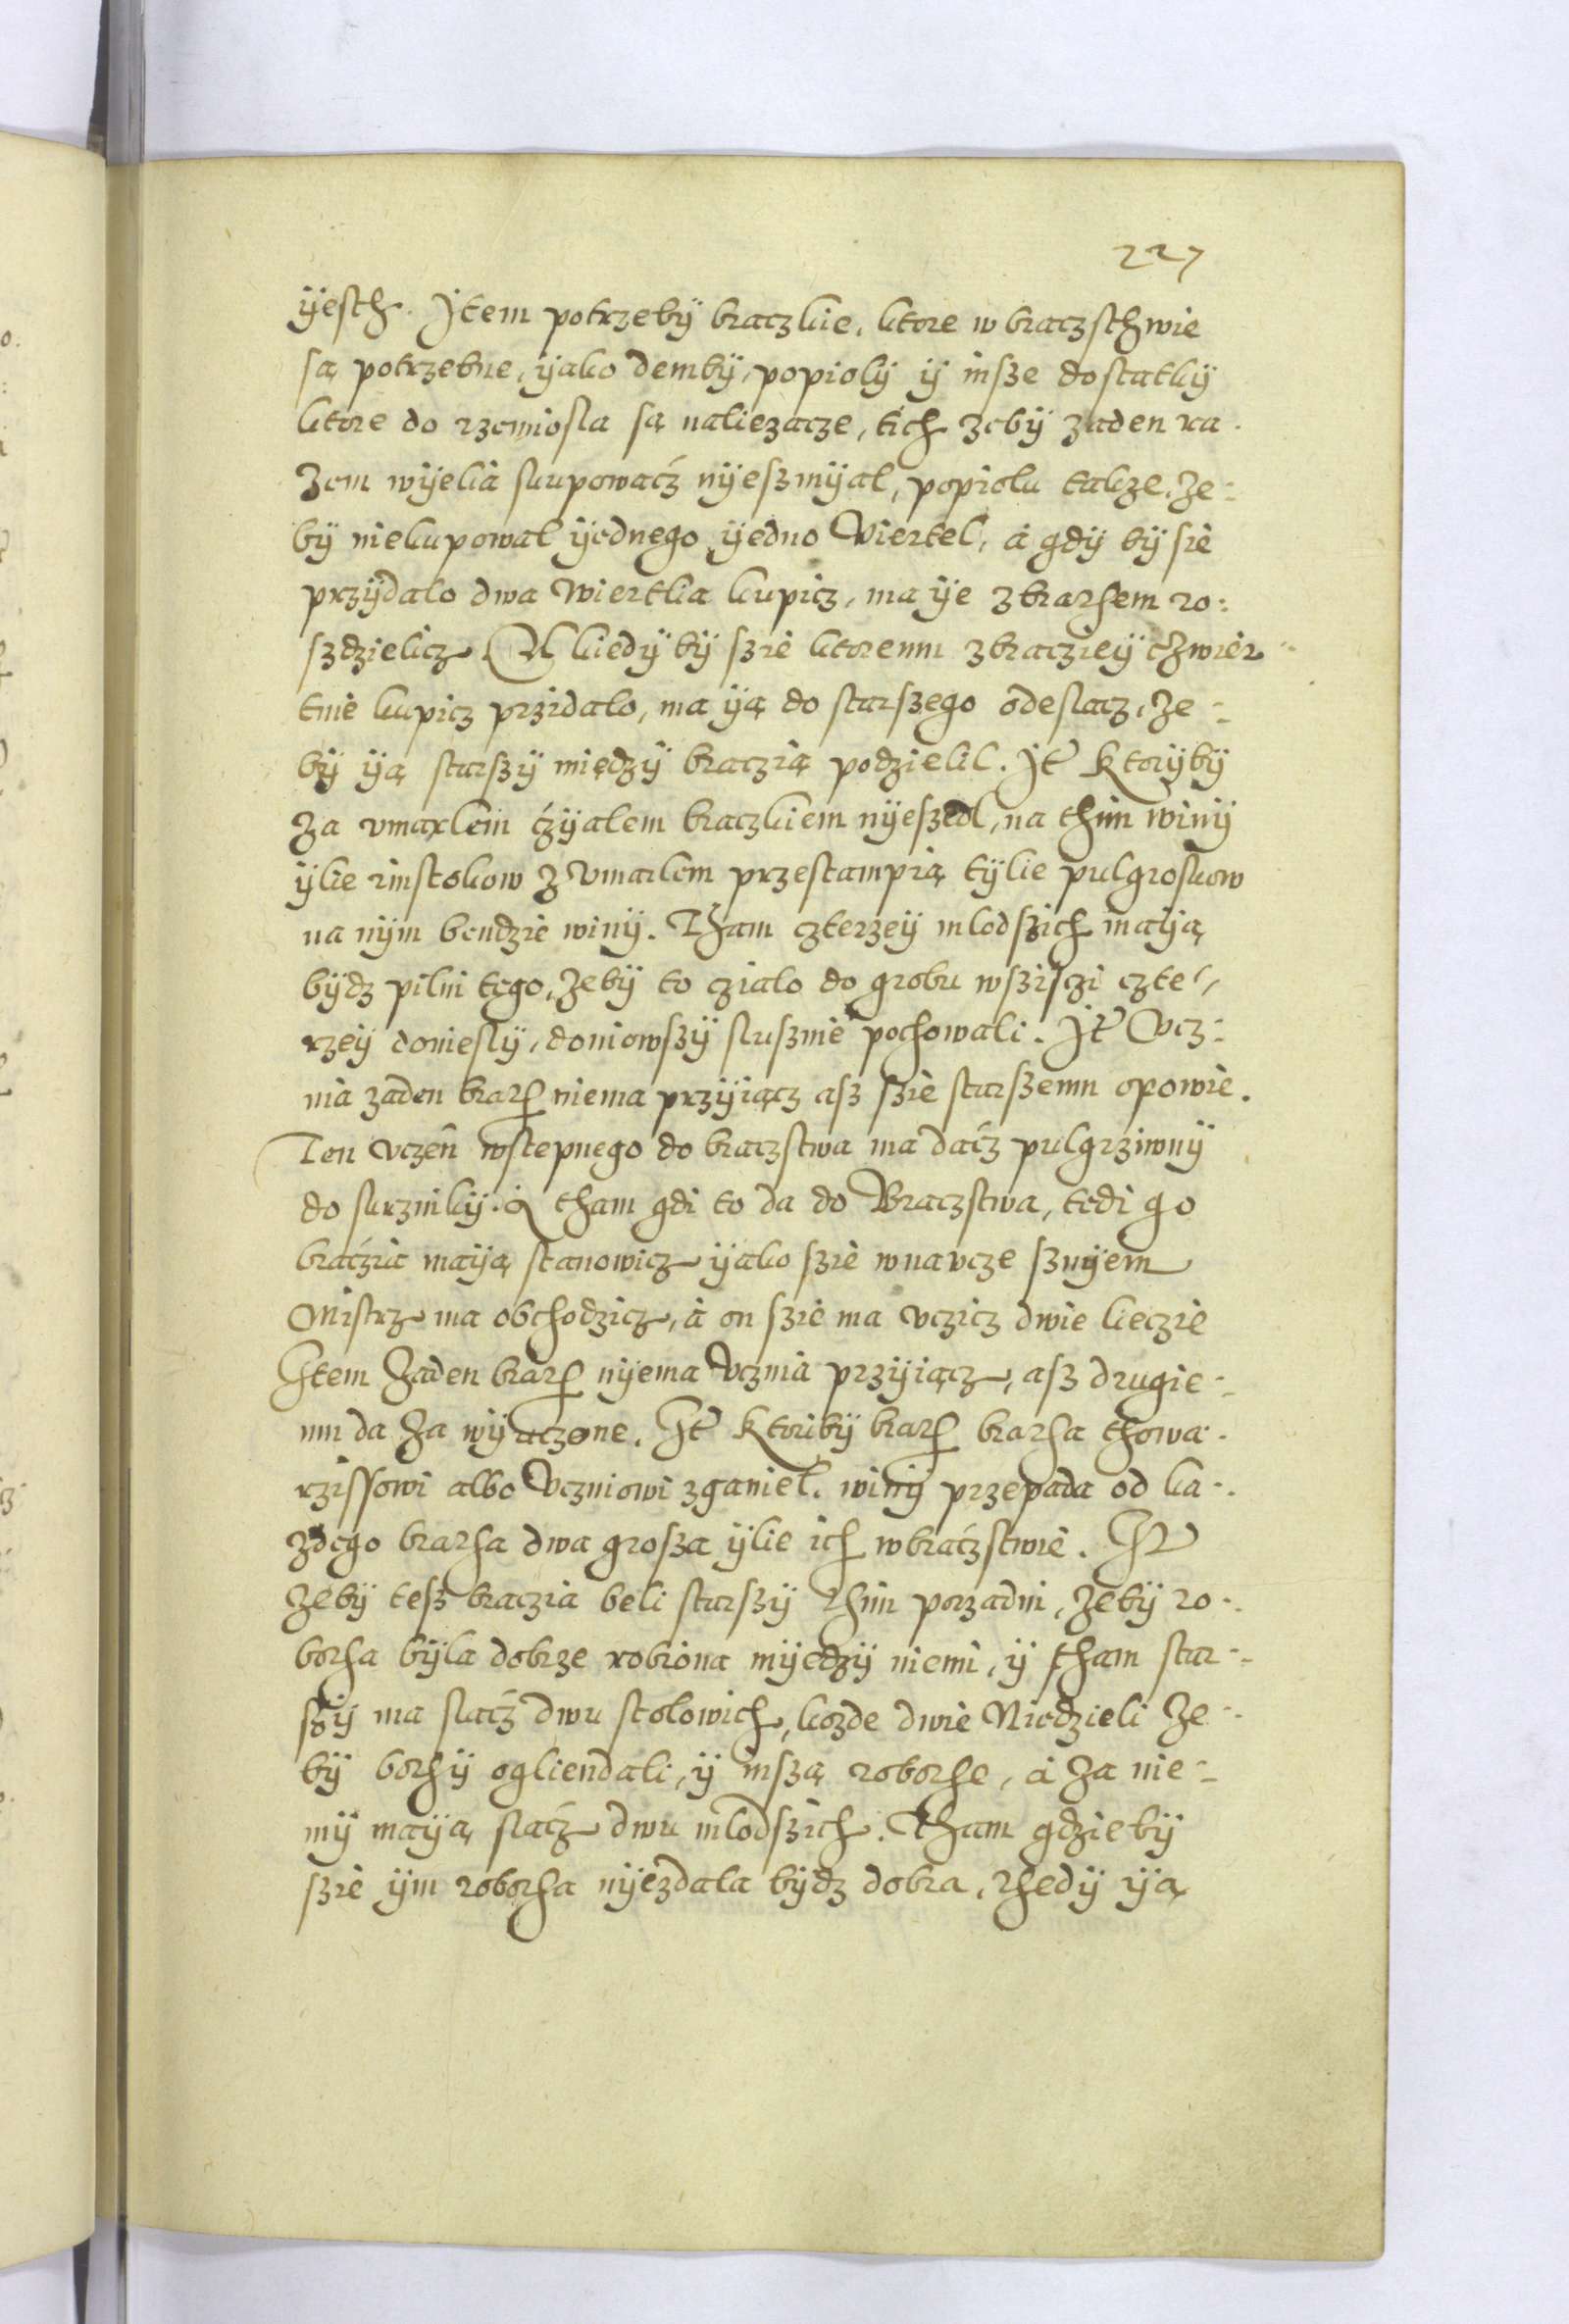 227
ÿesth. Jtem potrzebÿ braczkie, ktore w braczsthwie
są potrzebne, ÿako dembÿ, popiolÿ ÿ insze dostatkÿ
ktore do rzemiosla są naliezacze, tich zebÿ zaden ra-
zem wÿelia skupowacz nÿeszmÿal, popiolu takze, ze-
bÿ niekupowal ÿednego ÿedno Viertel, a gdÿ bÿ sie
przÿdalo dwa Wiertlia kupicz, ma ÿe z brathem ro-
szdzielicz. A kiedÿ bÿ szie ktoremu z bracziey czwier-
tnie kupicz przidalo, ma ÿą do starszego odeslacz, ze-
bÿ ÿą starszÿ międzÿ braczią podzielil. Jt Ktorÿbÿ
za vmarlem czÿalem braczkiem nÿeszedl, na thim winÿ
ÿlie rinstokow z Vmarlem przestampią tÿlie pulgroskow
na nÿm bendzie winÿ. Tham czterzeÿ mlodszich maÿą
bÿdz pilni tego, zebÿ to czialo do grobu wszisczi czte-
rzeÿ donieslÿ, doniowszÿ slusznie pochowali. Jt Vcz-
nia zaden brath niema przÿiącz asz szie starszemu opowie.
Ten vczen wstepnego do braczstwa ma dacz pulgrziwnÿ
do skrzinkÿ. A tham gdi to da do Braczstwa, tedi go
braczia maÿą stanowicz ÿako szie w navcze sznÿem
Mistrz ma obchodzicz, a on szie ma vczicz dwie lieczie
Jtem Zaden brath nÿema Vcznia przÿiącz, asz drugie-
mu da za wÿuczone. Jt Ktoribÿ brath bratha thowa-
rzissowi albo Vczniowi zganiel, winÿ przepada od ka-
zdego bratha dwa grosza ÿlie ich w braczstwie. Jt
zebÿ tesz braczia beli starszÿ thim porzadni, zebÿ ro-
botha bÿla dobrze robiona mÿedzÿ niemi, ÿ tham star-
szÿ ma slacz dwu stolowich, kozde dwie Niedzieli ze-
bÿ bothÿ ogliendali, ÿ inszą robothe, a za nie-
mÿ maÿą slacz dwu mlodszich. Tham gdziebÿ
szie ÿm robotha nÿezdala bÿdz dobra, thedÿ ÿą